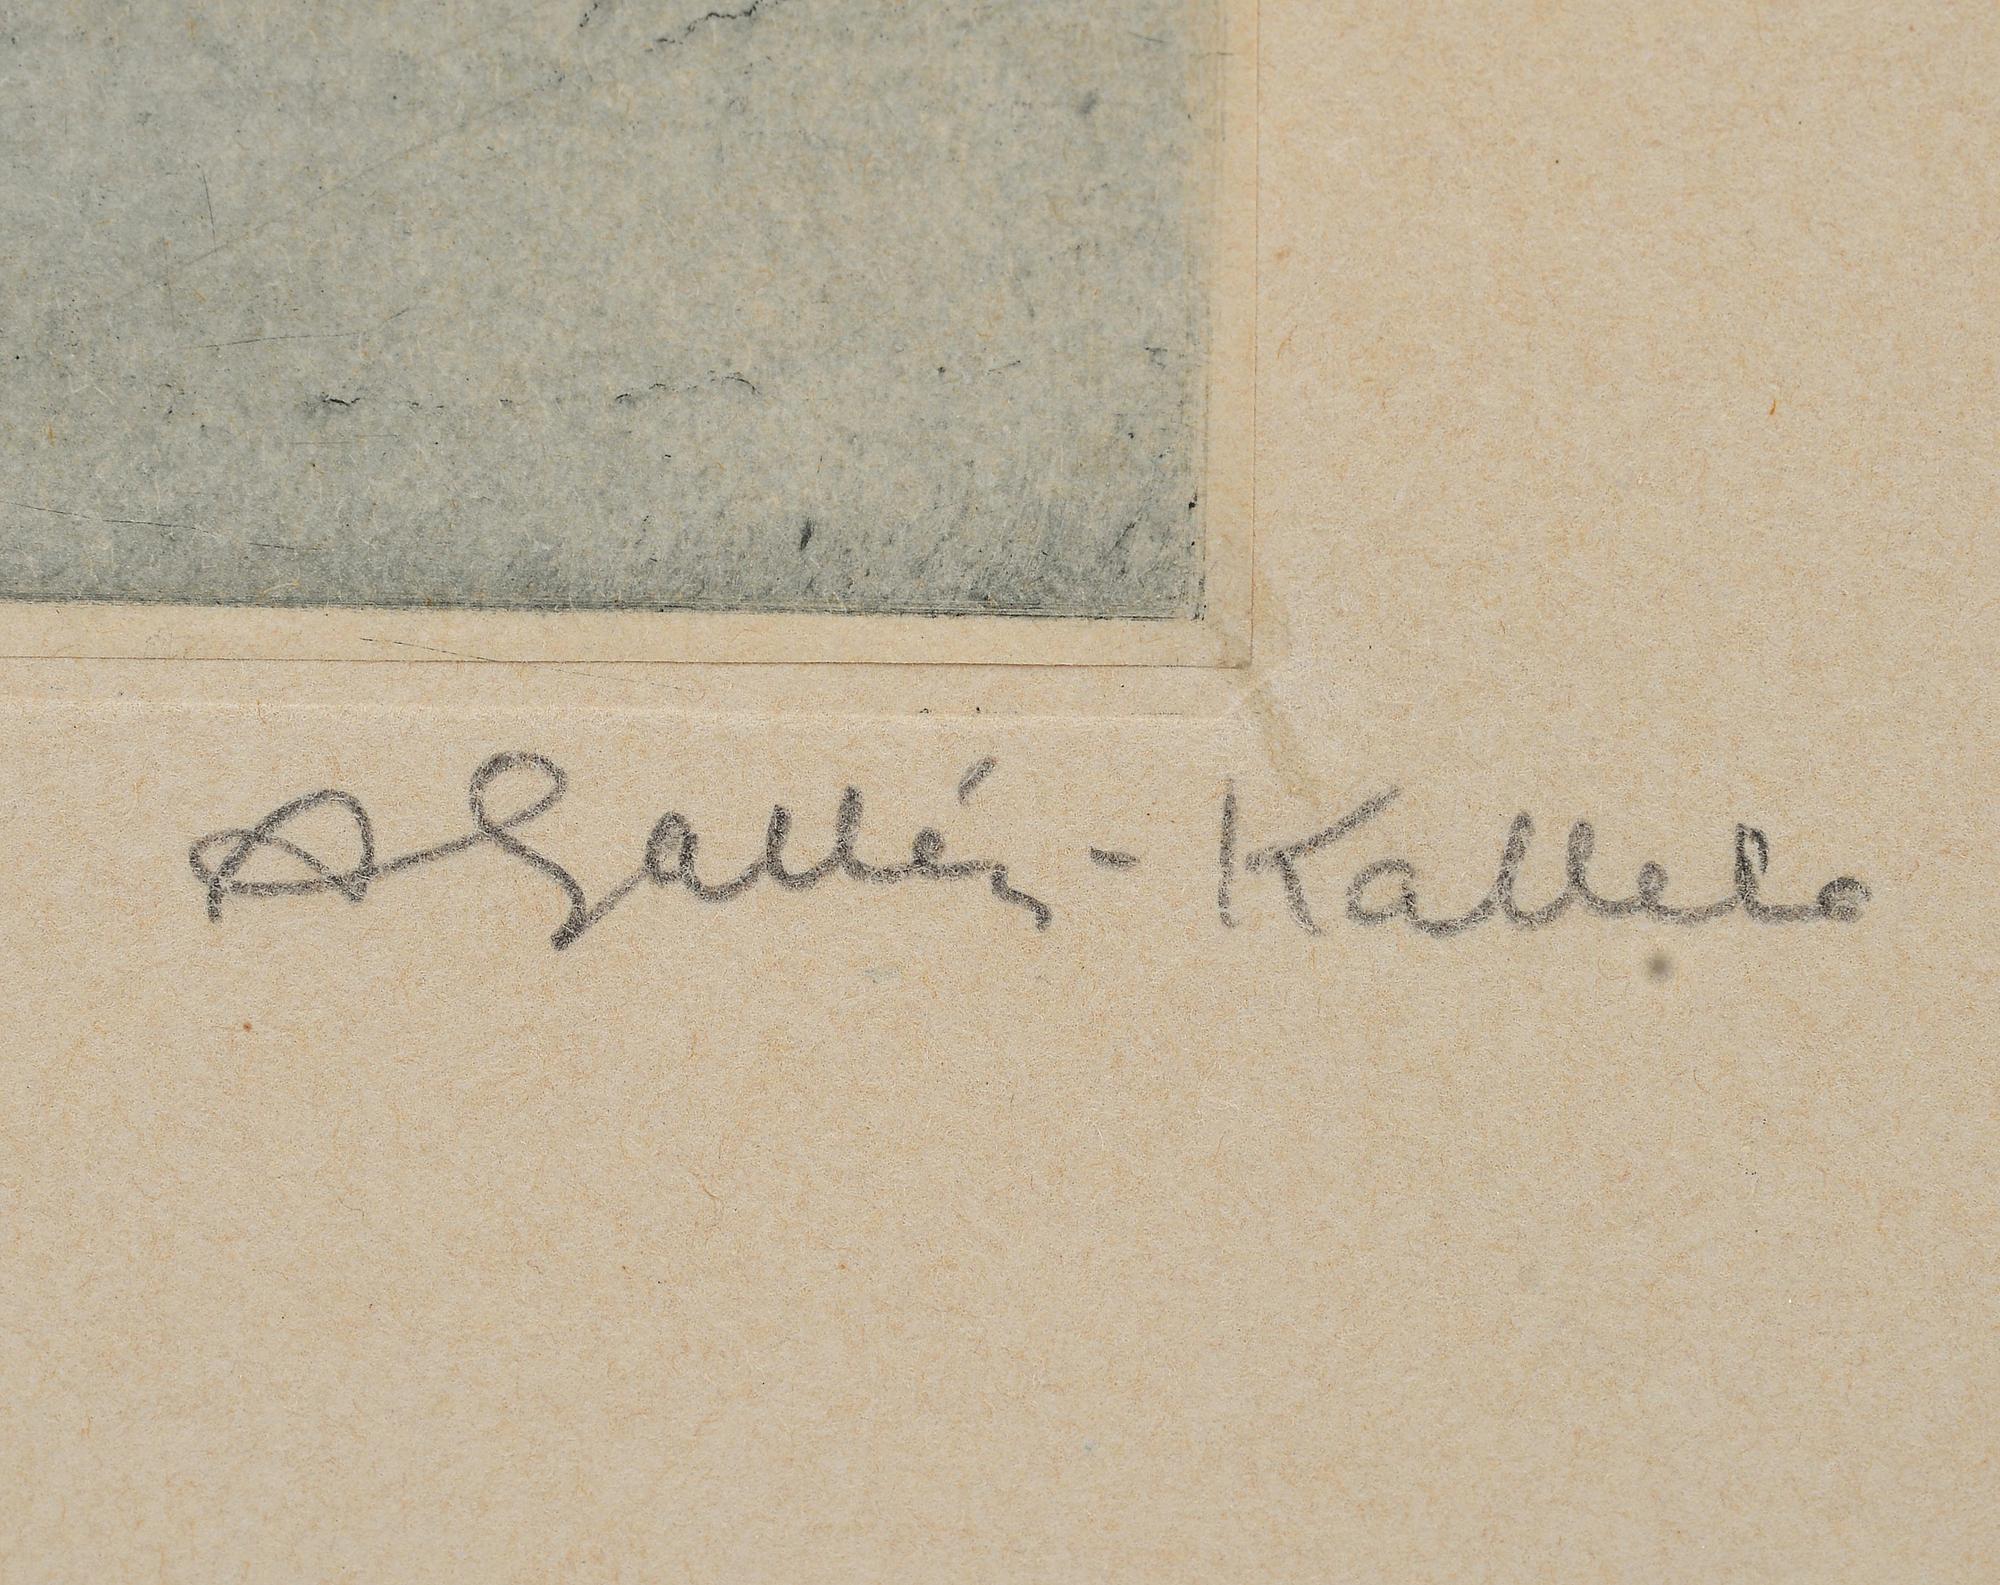 A Gallén-Kallela